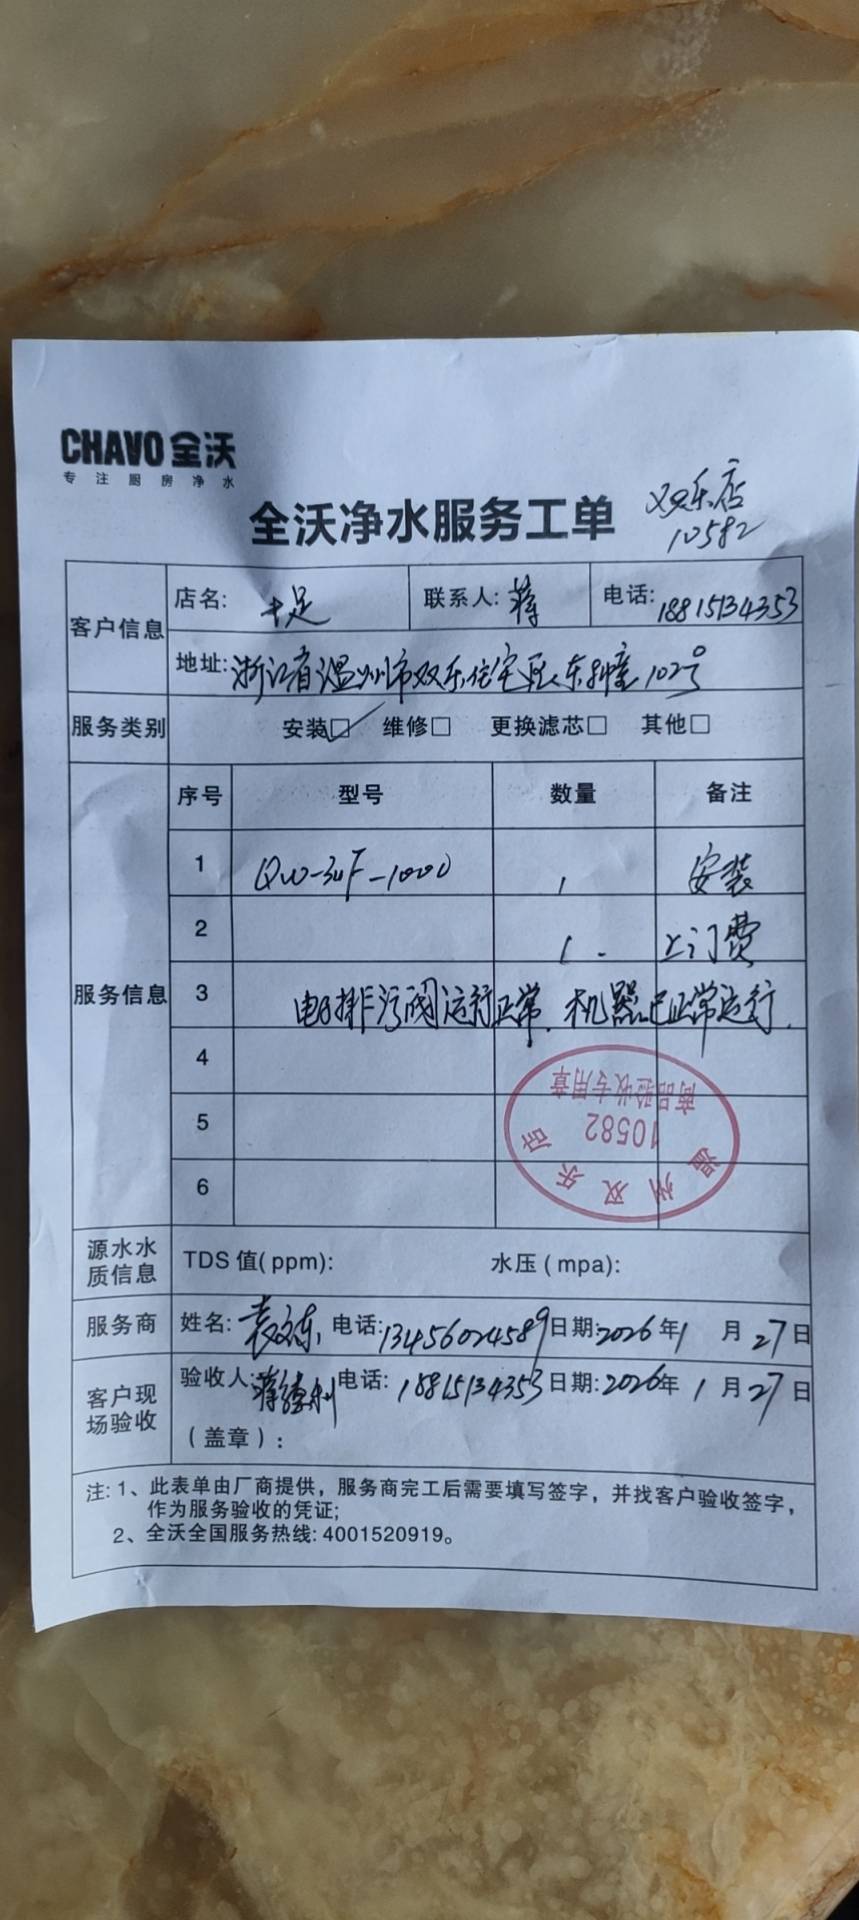 CHAVO 全沃
专注厨房净水
全沃净水服务工单
双乐店
10582
客户信息 店名: 十足 联系人: 蒋 电话: 18815134353
地址: 浙江省温州市双乐住宅区东3幢102号
服务类别 安装□✓ 维修□ 更换滤芯□ 其他□
服务信息 序号 型号 数量 备注
1 QW-3UF-1000 1 安装
2 1 上门费
3 排污阀运行正常.机器已正常运行.
4
5
6
温州双乐店
10582
商品验收专用章
源水水质信息 TDS 值(ppm): 水压(mpa):
服务商 姓名: 袁文东 电话: 13456024589 日期: 2026年1月27日
客户现场验收 验收人: 蒋德利 电话: 18815134353 日期: 2026年1月27日
(盖章):
注: 1、此表单由厂商提供，服务商完工后需要填写签字，并找客户验收签字，
作为服务验收的凭证;
2、全沃全国服务热线: 4001520919。